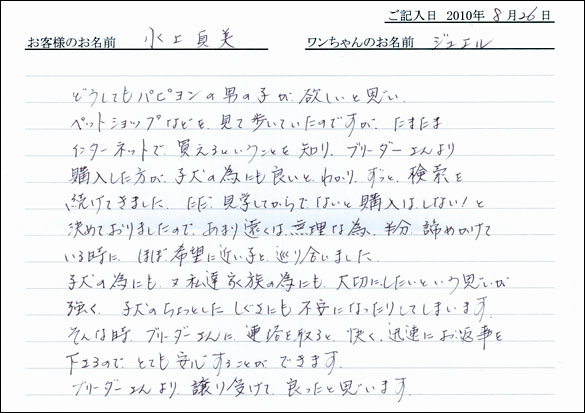 ご記入日 2010年 8月26日
お客様のお名前 水上真美 ワンちゃんのお名前 ジュエル
どうしてもパピヨンの男の子が、欲しいと思い、
ペットショップなどを、見て歩いていたのですが、たまたま
インターネットで、買えるということを知り、ブリーダーさんより
購入した方が、子犬の為にも良いとわかり、ずっと、検索を
続けてきました。ただ、見学してからでないと購入はしない！と
決めておりましたので、あまり遠くは、無理な為、半分、諦めかけて
いる時に、ほぼ希望に近い子と、巡り合いました。
子犬の為にも、又私達家族の為にも、大切にしたいという思いが
強く、子犬のちょっとした しぐさにも 不安になったりしてしまいます。
そんな時、ブリーダーさんに、連絡を取ると、快く、迅速にお返事を
下さるので、とても安心することができます。
ブリーダーさんより、譲り受けて、良かったと思います。